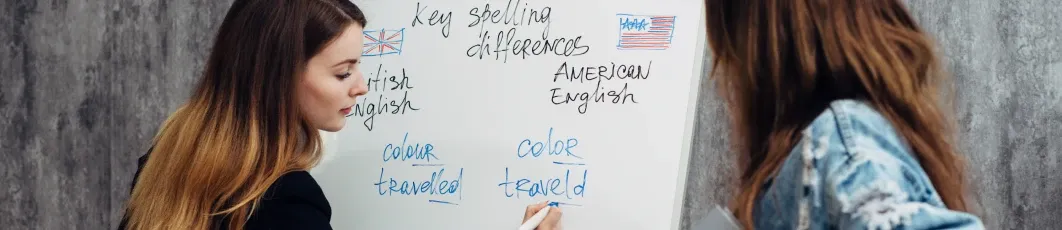 Key spelling
differences
itish
nglish
AMERICAN
English
colour
travelled
color
traveld